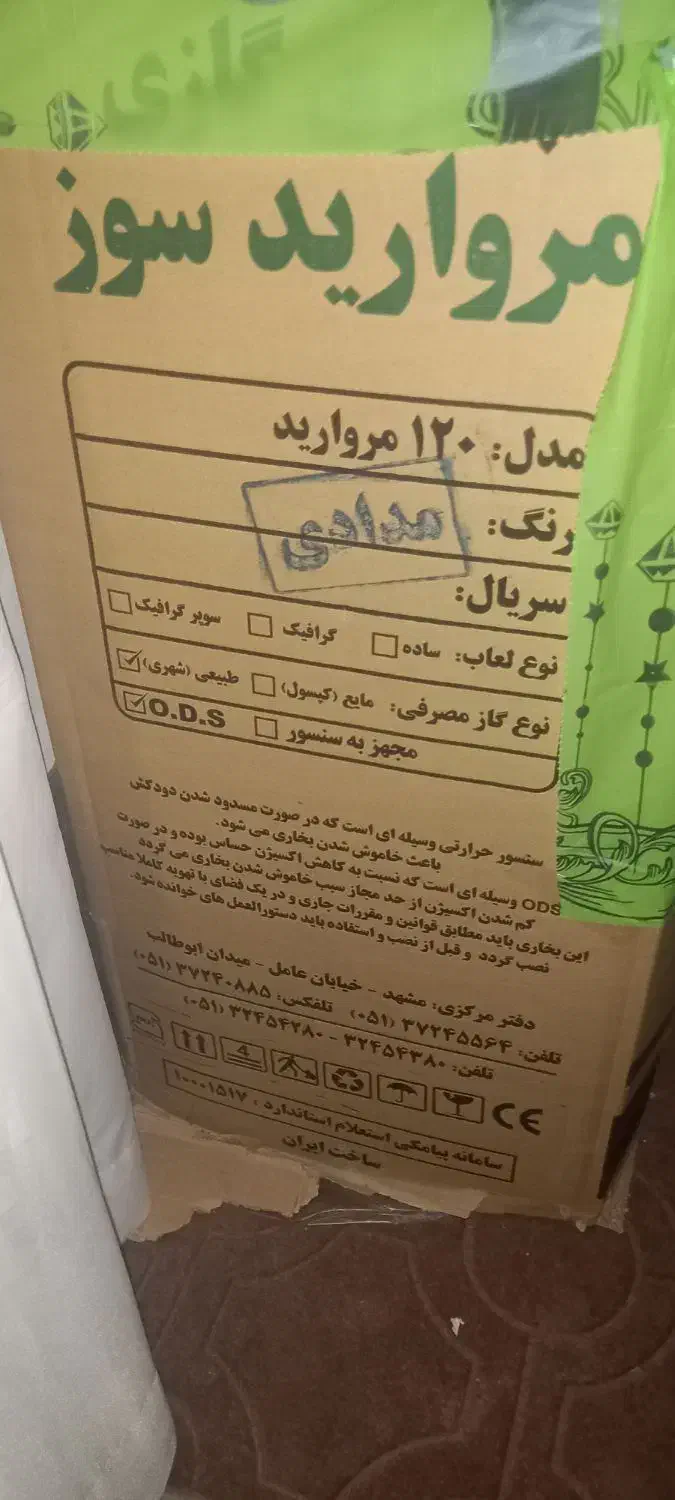 گازی
مروارید سوز
مدل: ۱۲۰ مروارید
رنگ: مدادی
سریال:
نوع لعاب: ساده گرافیک سوپر گرافیک
نوع گاز مصرفی: مایع (کپسول) طبیعی (شهری)
مجهز به سنسور O.D.S
سنسور حرارتی وسیله ای است که در صورت مسدود شدن دودکش
باعث خاموش شدن بخاری می شود.
ODS وسیله ای است که نسبت به کاهش اکسیژن حساس بوده و در صورت
کم شدن اکسیژن از حد مجاز سبب خاموش شدن بخاری می گردد
این بخاری باید مطابق قوانین و مقررات جاری و در یک فضای با تهویه کاملا مناسب
نصب گردد و قبل از نصب و استفاده باید دستورالعمل های خوانده شود.
دفتر مرکزی: مشهد - خیابان عامل - میدان ابوطالب
تلفن: ۳۷۲۴۵۵۶۴ (۰۵۱) تلفکس: ۳۷۲۴۰۸۸۵ (۰۵۱)
تلفن: ۳۲۴۵۴۳۸۰ - ۳۲۴۵۴۲۸۰ (۰۵۱)
4 CE
سامانه پیامکی استعلام استاندارد : ۱۰۰۰۱۵۱۷
ساخت ایران